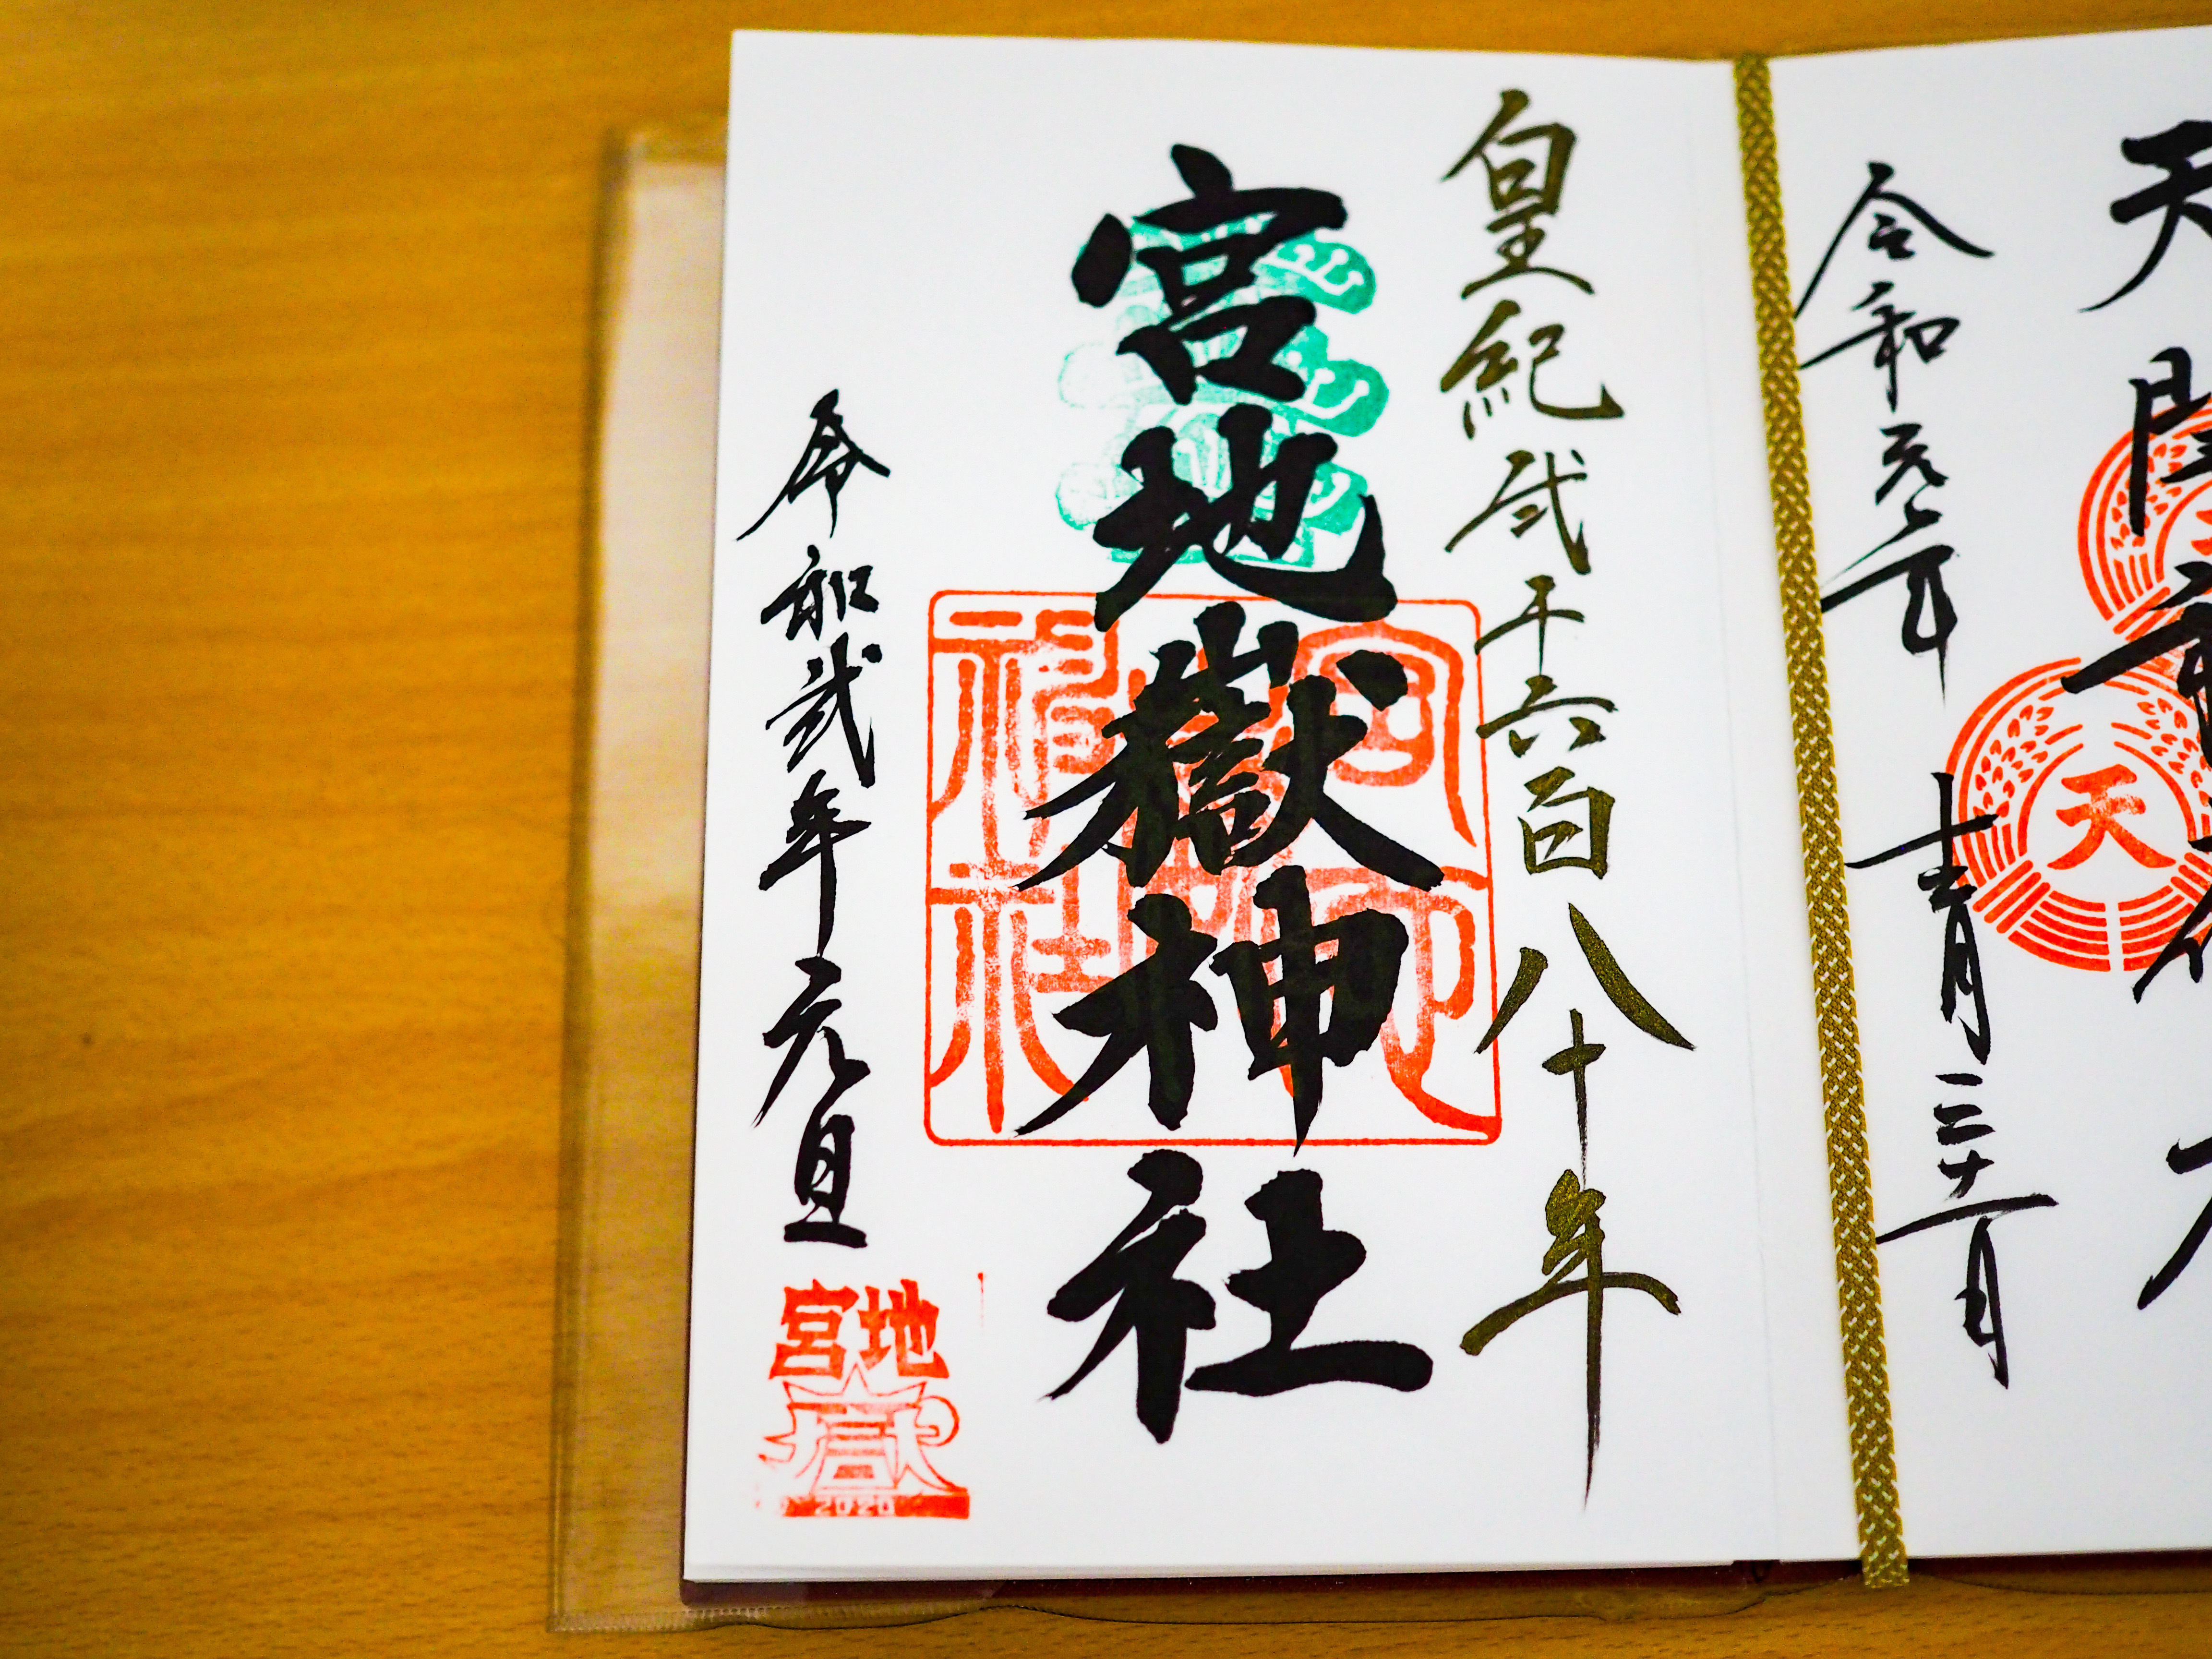 天開稲
令和元年 十一月二十一日
皇紀弐千六百八十年
宮地嶽神社
宮地嶽神社印
令和弐年元旦
宮地
嶽
2020
天